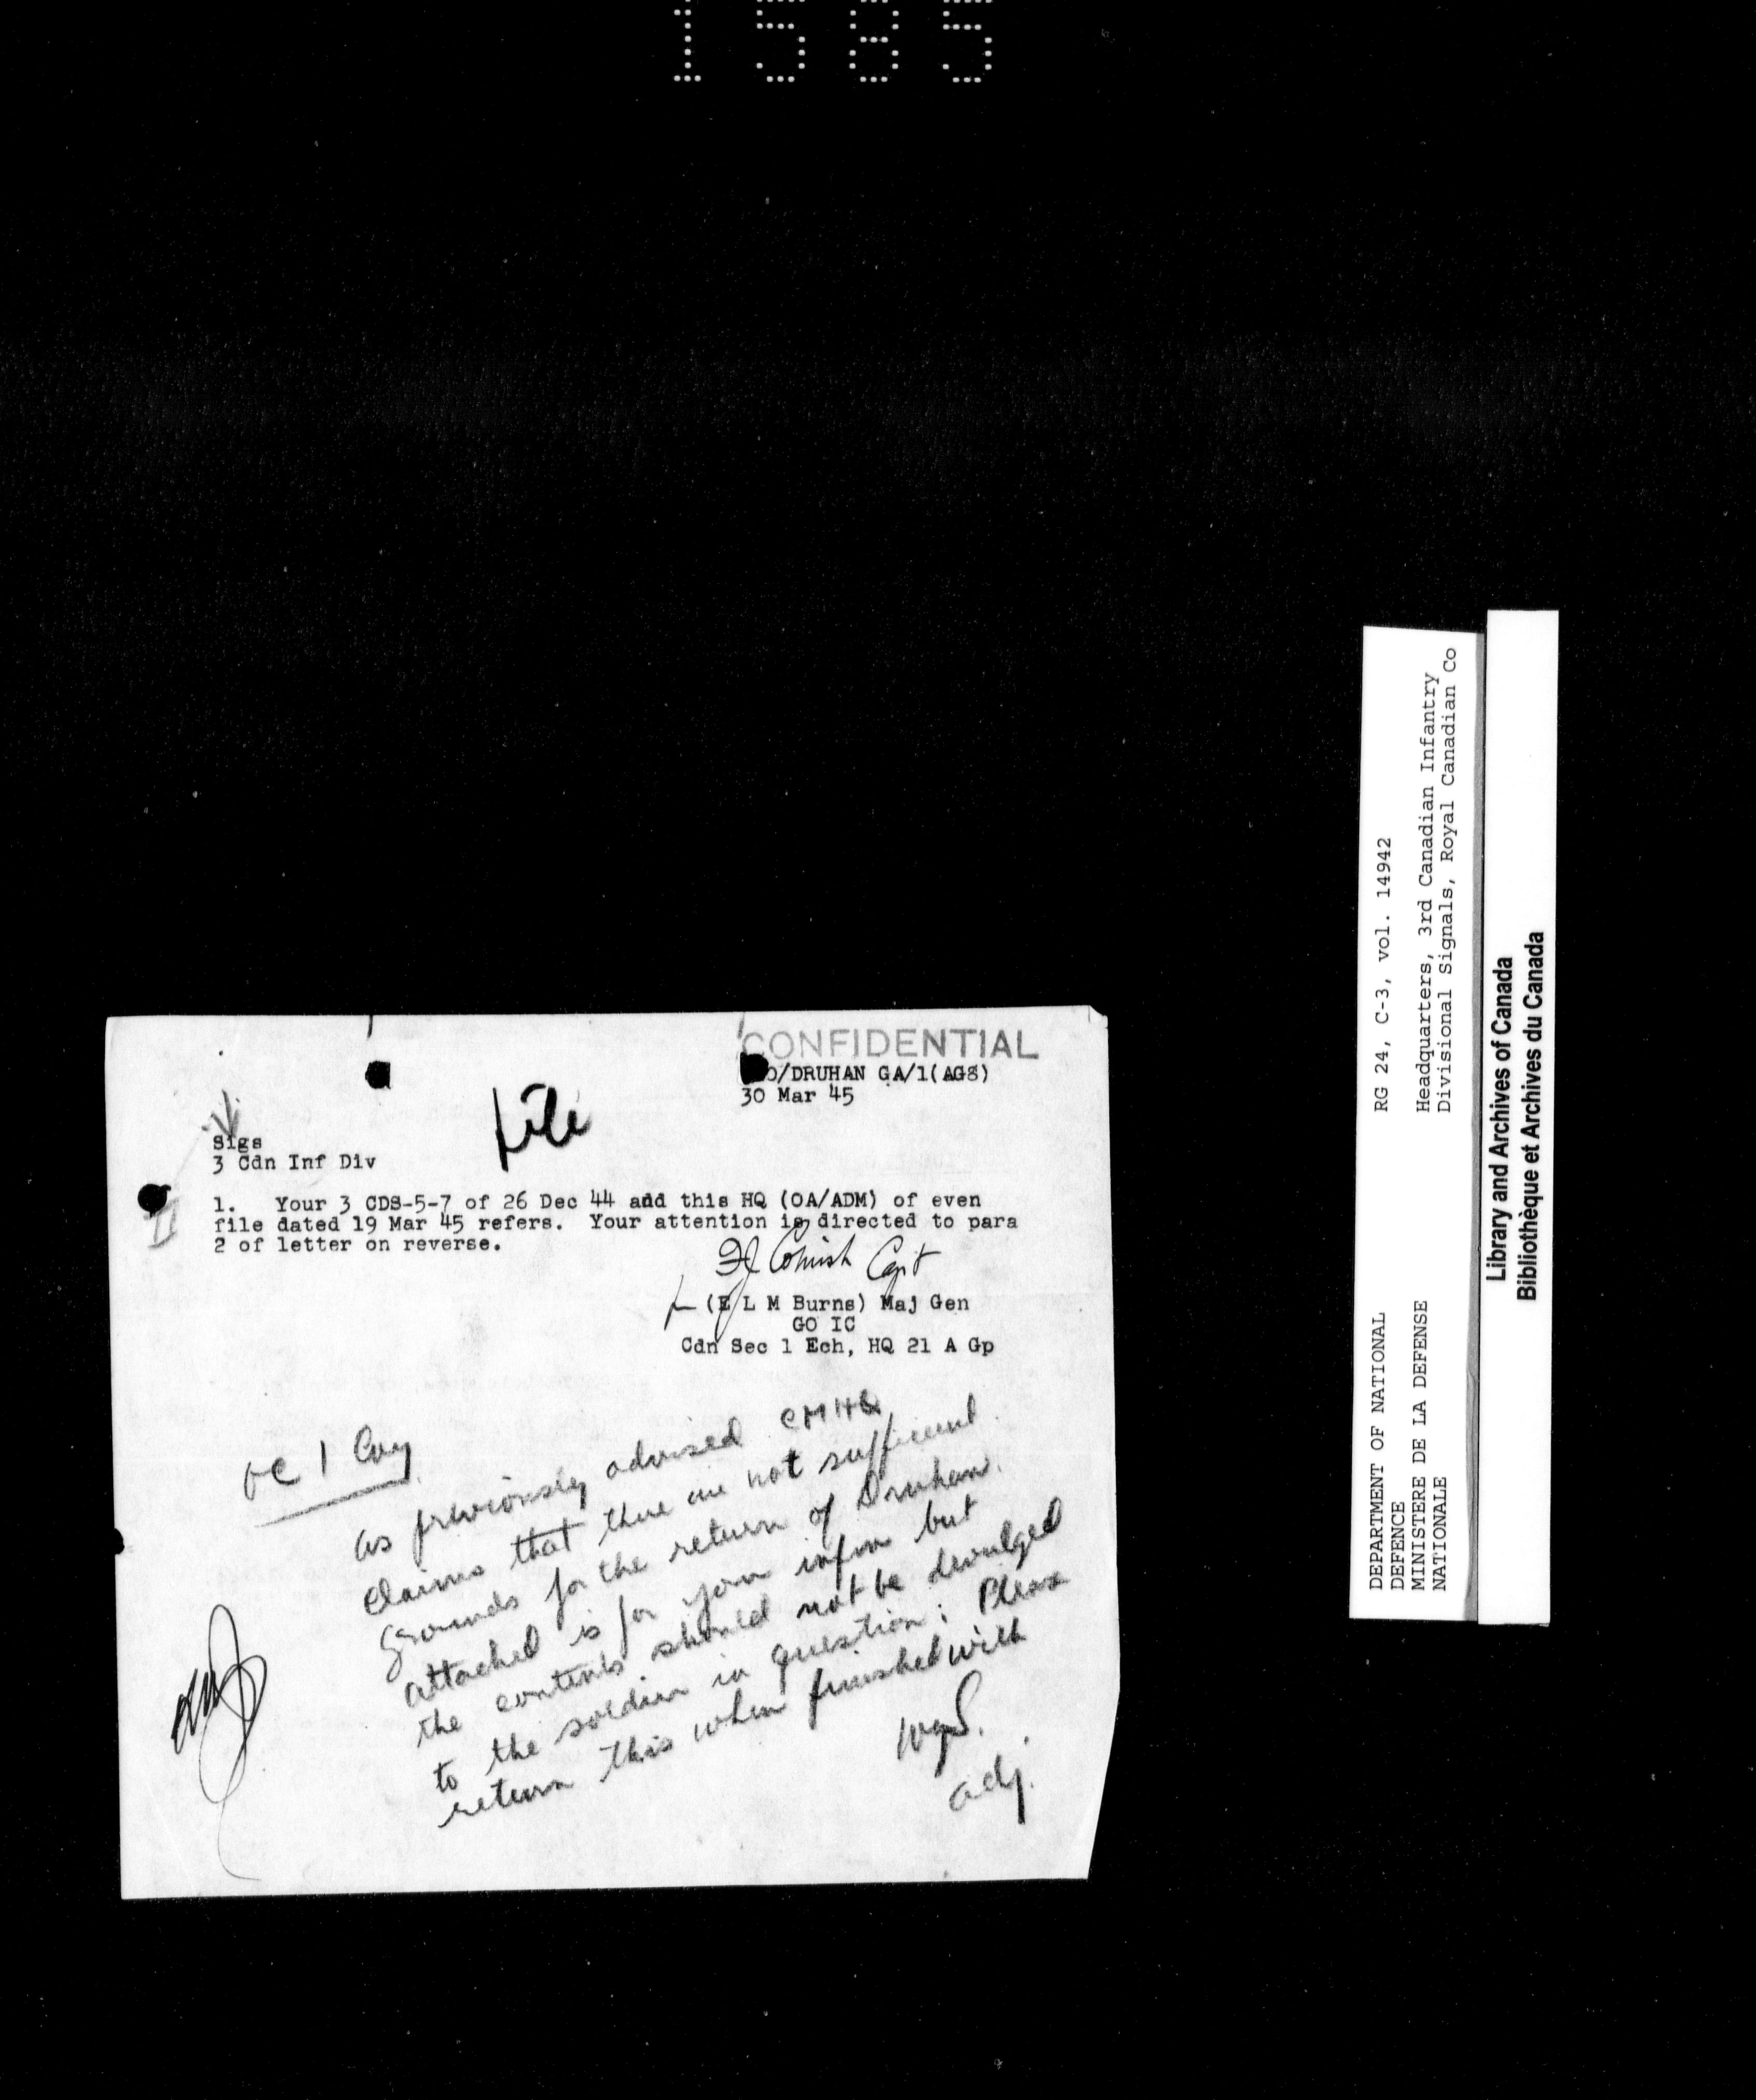 1585
CONFIDENTIAL
O/DRUHAN GA/1(AG8)
30 Mar 45
File
Sigs
3 Cdn Inf Div
1. Your 3 CDS-5-7 of 26 Dec 44 and this HQ (OA/ADM) of even
file dated 19 Mar 45 refers. Your attention is directed to para
2 of letter on reverse.
Capt
(E L M Burns) Maj Gen
GO IC
Cdn Sec 1 Ech, HQ 21 A Gp
OC 1 Coy
As previously advised CMHQ
claims that there are not sufficient
grounds for the return of Druhan.
Attached is for your infm but
the contents should not be divulged
to the soldier in question. Please
return this when finished with
Adj.
RG 24, C-3, vol. 14942
Headquarters, 3rd Canadian Infantry
Divisional Signals, Royal Canadian Co
DEPARTMENT OF NATIONAL
DEFENCE
MINISTERE DE LA DEFENSE
NATIONALE
Library and Archives of Canada
Bibliothèque et Archives du Canada